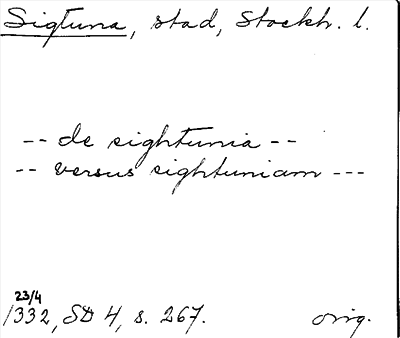 Sigtuna, stad, Stockh. l.
-- de sightunia --
-- versus sightuniam ---
23/4
1332, SD 4, s. 267. orig.